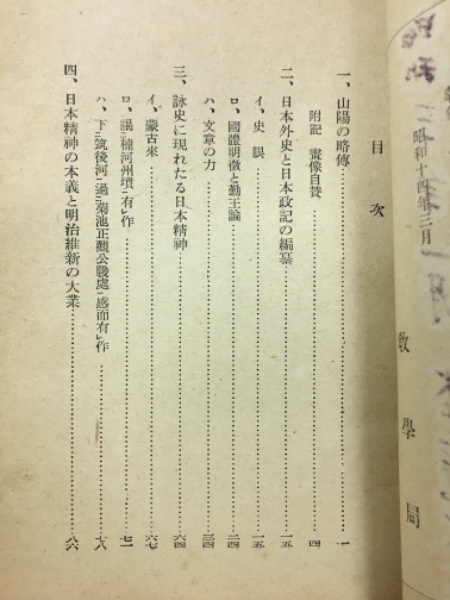 昭和十四年三月
教學局
目次
一、山陽の略傳……一
附記 畫像自賛……四
二、日本外史と日本政記の編纂……一五
イ、史眼……一五
ロ、國體明徴と勤王論……二四
ハ、文章の力……三四
三、詠史に現れたる日本精神……六四
イ、蒙古來……六七
ロ、謁楠河州墳有作……七一
ハ、下筑後河過菊池正觀公戰處感而有作……七八
四、日本精神の本義と明治維新の大業……八六